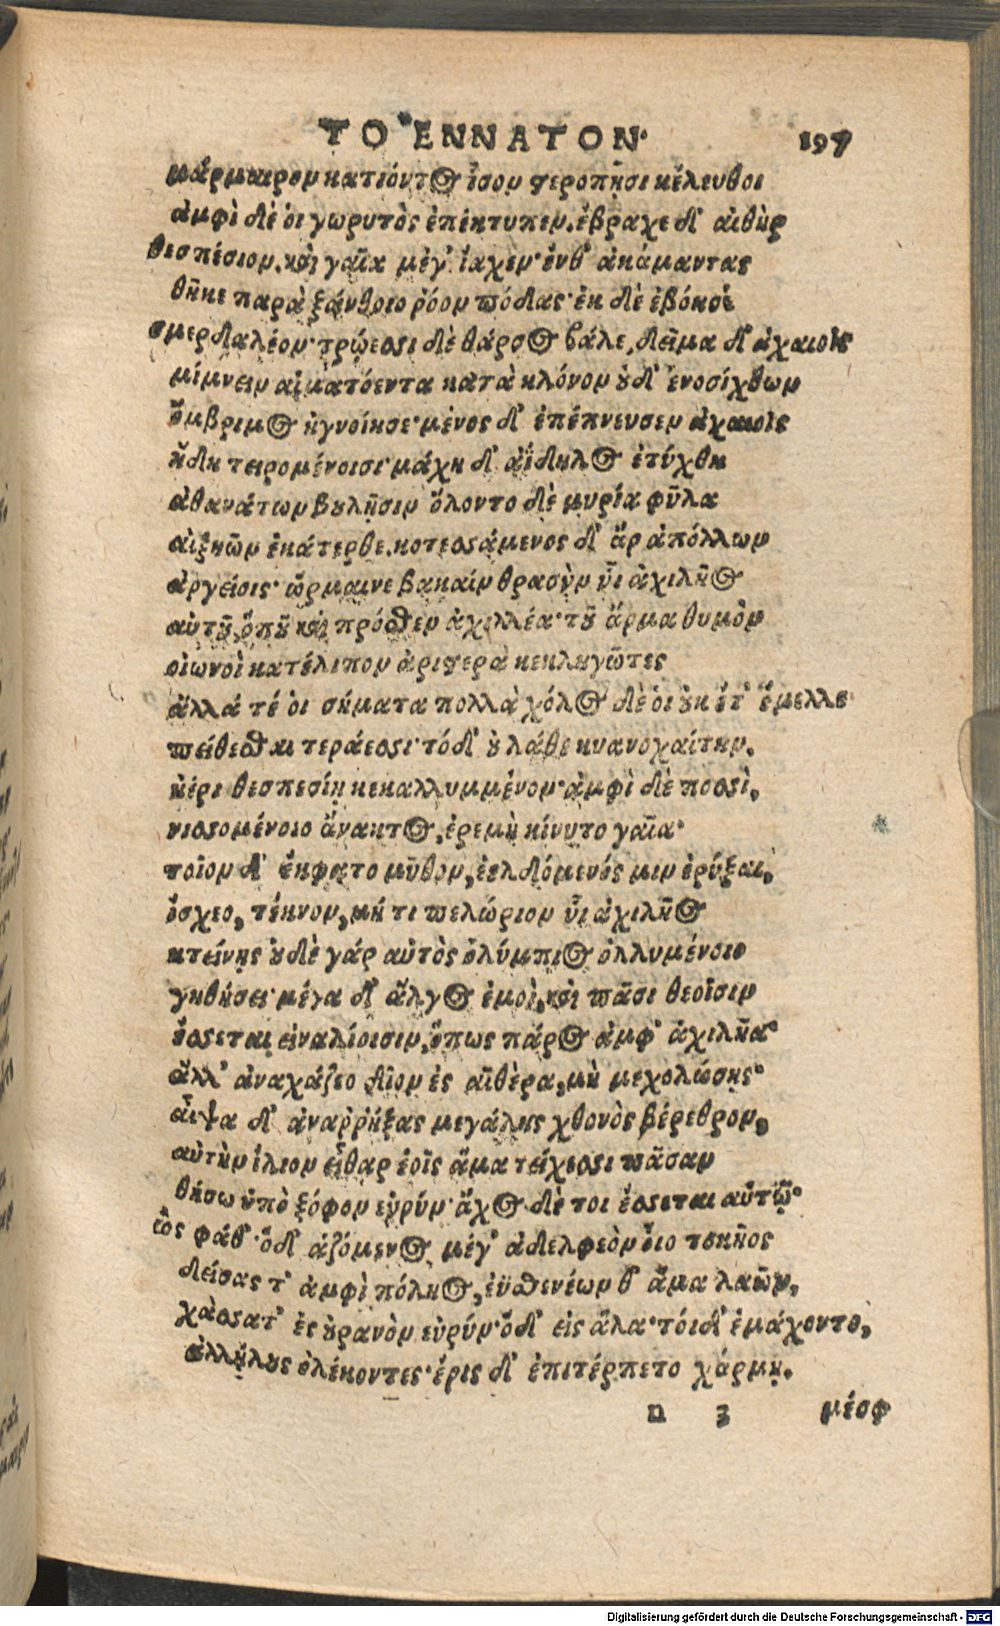 ΤΟ ἜΝΝΑΤΟΝ· 197
μάρμαιρον κατιόντος ἶσον στεροπῇσι κέλευθοι
ἀμφὶ δέ οἱ γωρυτὸς ἐπέκτυπεν. ἔβραχε δ' αἰθὴρ
θεσπέσιον, καὶ γαῖα μέγ' ἴαχεν· ἔνθ' ἀκάμαντας
θῆκε παρὰ ξάνθοιο ῥόον πόδας· ἐκ δὲ ἐβόησε
σμερδαλέον· τρώεσσι δὲ θάρσος βάλε, δεῖμα δ' ἀχαιοῖς
μίμνειν αἱματόεντα κατὰ κλόνον οὐδ' ἐνοσίχθων
ὄμβριμος ἠγνοίησε· μένος δ' ἐπέπνευσεν ἀχαιοῖς
ἤδη τειρομένοισι· μάχη δ' ἀΐδηλος ἐτύχθη
ἀθανάτων βουλῇσιν ὄλοντο δὲ μυρία φῦλα
αἰζηῶν ἑκάτερθε. κοτεσσάμενος δ' ἄρ ἀπόλλων
ἀργείοις· ὥρμαινε βακαίν θρασὺν υἷ ἀχιλῆος
αὐτοῦ, ὅπου καὶ πρόσθεν ἀχιλλέα· τοῦ ἄρμα θυμὸν
οἰωνοὶ κατέλιπον ἀριστερὰ κεκληγῶτες
ἄλλά τέ οἱ σήματα πολλὰ χόλος δέ οἱ οὐκ ἔτ' ἔμελλε
πείθεσθαι τεράεσσι· τό δ' οὐ λάθε κυανοχαίτην.
ἠέρι θεσπεσίῃ κεκαλλυμμένον· ἀμφὶ δὲ ποσσὶ,
νισσομένοιο ἄνακτος, ἐρεμνὴ κίνυτο γαῖα·
τοῖον δ' ἔκφατο μῦθον, ἐελδόμενός μιν ἐρύξαι,
ἴσχεο, τέκνον, μή τι πελώριον υἷ ἀχιλῆος
κτείνῃς οὐδὲ γάρ αὐτὸς ὀλύμπιος ὀλλυμένοιο
γηθήσει· μέγα δ' ἄλγος ἐμοὶ, καὶ πᾶσι θεοῖσιν
ἔσσεται εἰναλίοισιν, ὅπως πάρος ἀμφ' ἀχιλῆα·
ἀλλ' ἀναχάζεο δῖον ἐς αἰθέρα, μὴ με χολώσῃς·
αἶψα δ' ἀναρρήξας μεγάλης χθονὸς βέρεθρον,
αὐτὴν ἴλιον εἶθαρ ἑοῖς ἅμα τείχεσσι πᾶσαν
θήσω ὑπὸ ζόφον εὐρύν· ἄχος δέ τοι ἔσσεται αὐτῷ·
ὣς φάθ'· ὁ δ' ἁζόμενος μέγ' ἀδελφεὸν οἷο τοκῆος
δείσας τ' ἀμφὶ πόληος, ἐϋσθενέων θ' ἅμα λαῶν,
χάσσατ' ἐς οὐρανὸν εὐρύν· ὁ δ' εἰς ἅλα· τοὶ δ' ἐμάχοντο,
ἀλλήλους ὀλέκοντες· ἔρις δ' ἐπιτέρπετο χάρμῃ.
n 3 μέσφ
Digitalisierung gefördert durch die Deutsche Forschungsgemeinschaft - DFG